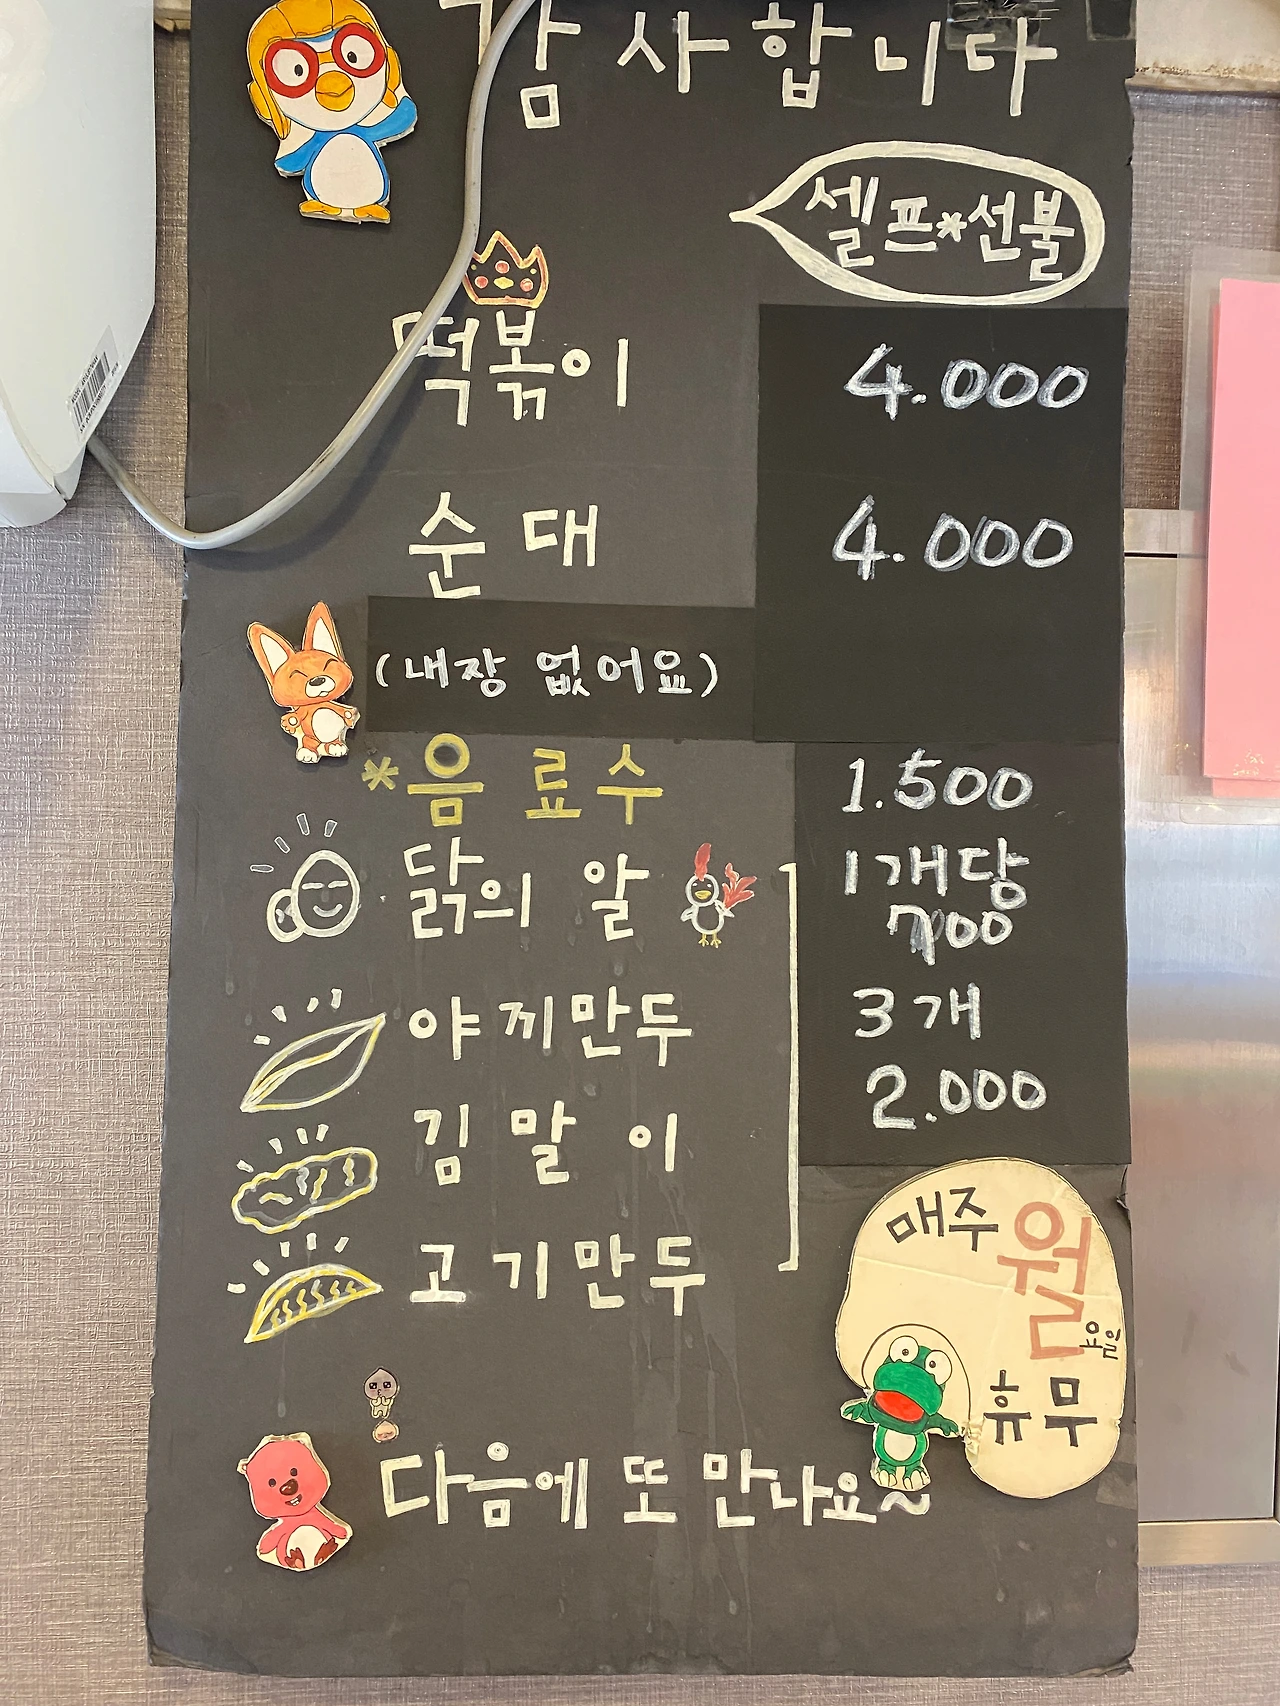 감사합니다
셀프*선불
떡볶이 4.000
순대 4.000
(내장 없어요)
*음료수 1.500
닭의 알 1개당
700
야끼만두 3개
김말이 2.000
고기만두
매주 월요일
휴무
다음에 또 만나요~